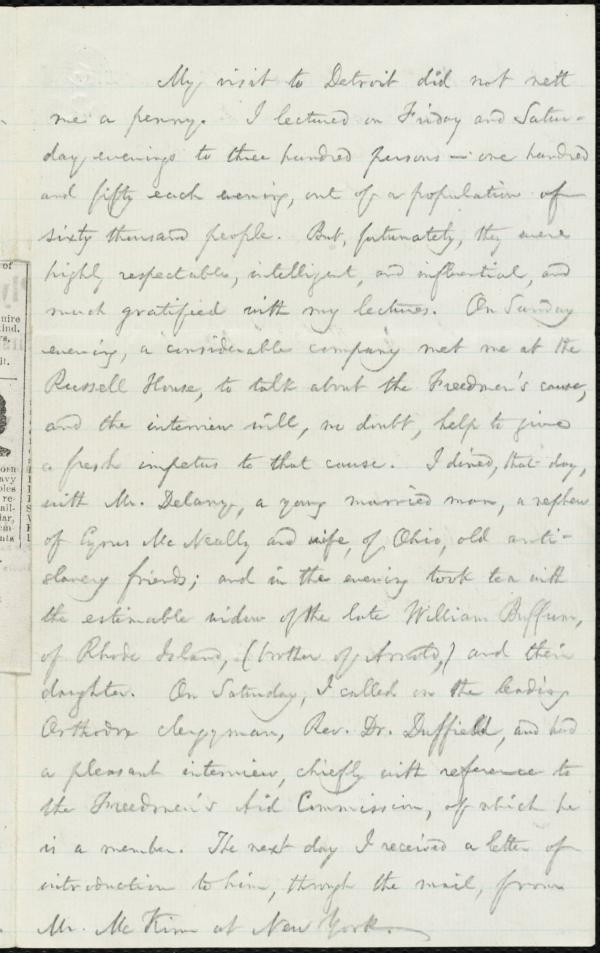 My visit to Detroit did not nett
me a penny. I lectured on Friday and Satur-
day evenings to three hundred persons — one hundred
and fifty each evening, out of a population of
sixty thousand people. But, fortunately, they were
highly respectable, intelligent, and influential, and
much gratified with my lectures. On Sunday
evening, a considerable company met me at the
Russell House, to talk about the Freedmen's cause,
and the interview will, no doubt, help to give
a fresh impetus to that cause. I dined, that day,
with Mr. Delany, a young married man, a nephew
of Cyrus McNeally and wife, of Ohio, old anti-
slavery friends; and in the evening took tea with
the estimable widow of the late William Buffum,
of Rhode Island, (brother of Arnold,) and their
daughter. On Saturday, I called on the leading
Orthodox clergyman, Rev. Dr. Duffield, and had
a pleasant interview, chiefly with reference to
the Freedmen's Aid Commission, of which he
is a member. The next day I received a letter of
introduction to him, through the mail, from
Mr. McKim at New York.
of
uire
ind.
it.